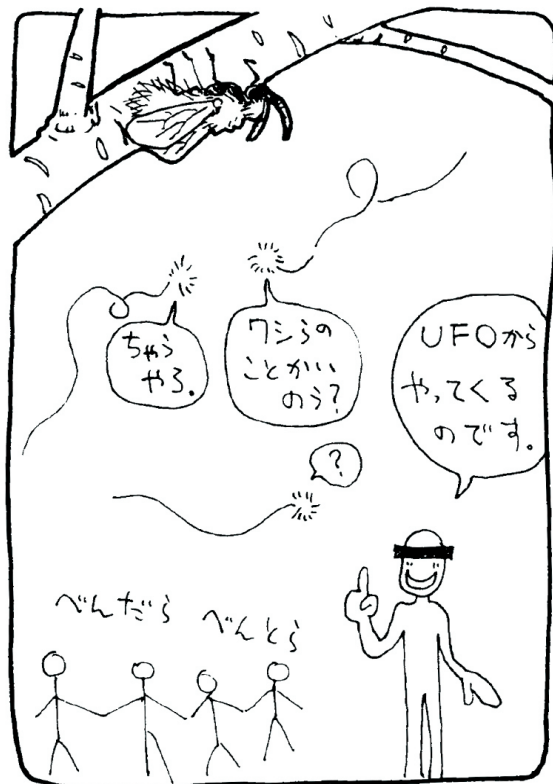 UFOから
やってくる
のです。
ワシらの
ことかいのう?
ちゃうやろ。
?
べんだら
べんとら